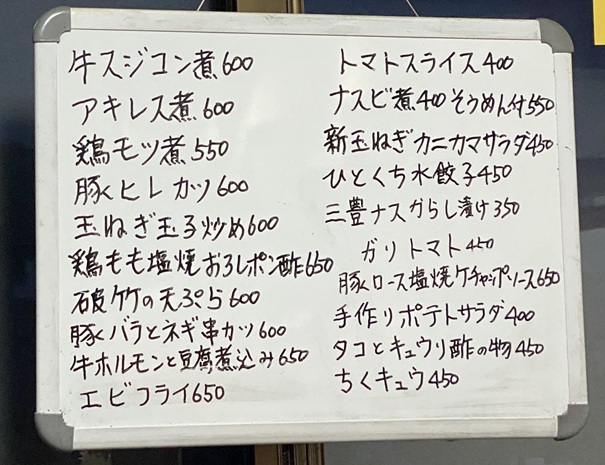 牛スジコン煮600
アキレス煮600
鶏モツ煮550
豚ヒレカツ600
玉ねぎ玉子炒め600
鶏もも塩焼おろしポン酢650
破竹の天ぷら600
豚バラとネギ串カツ600
牛ホルモンと豆腐煮込み650
エビフライ650
トマトスライス400
ナスビ煮400 そうめん付550
新玉ねぎカニカマサラダ450
ひとくち水餃子450
三豊ナスからし漬け350
ガリトマト450
豚ロース塩焼ケチャップソース650
手作りポテトサラダ400
タコとキュウリ酢の物450
ちくキュウ450